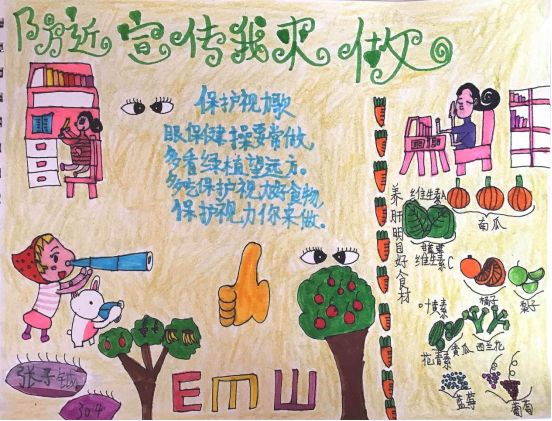 防近宣传我来做
保护视力歌
眼保健操要常做,
多看绿植望远方。
多吃保护视力好食物,
保护视力你来做。
养肝明目好食材
维生素A
南瓜
菠菜
维生素C
橘子
梨子
叶黄素
黄瓜
西兰花
花青素
蓝莓
葡萄
E m W
304